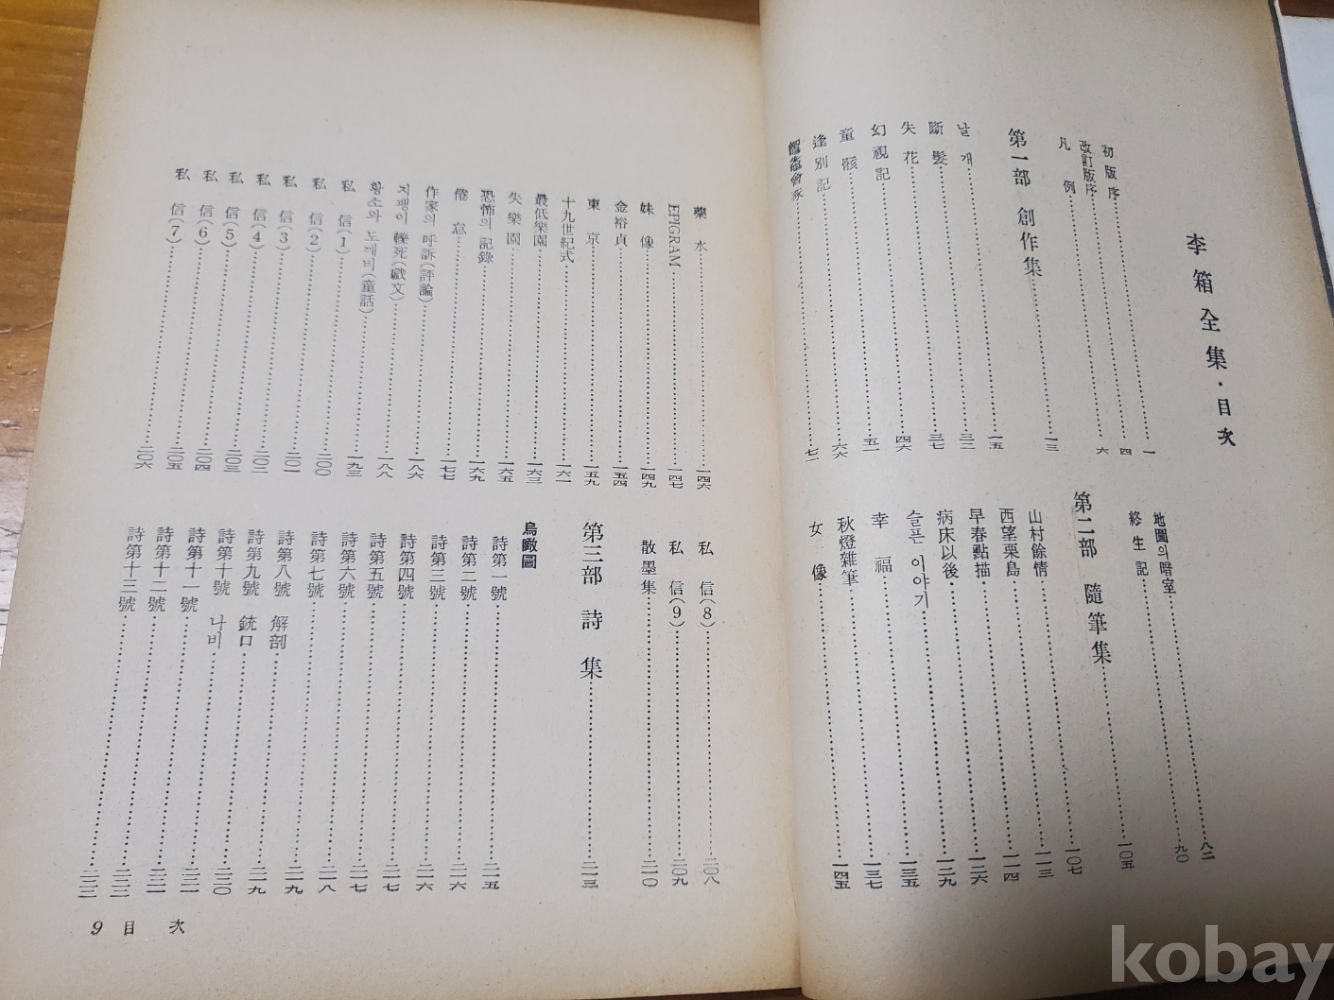 李箱全集・目次
初版序 一
改訂版序 四
凡例 六
第一部 創作集 一三
날개 一五
斷髮 三二
失花 三七
幻視記 四六
童骸 五一
逢別記 六六
七一
地圖의暗室 八二
終生記 九〇
第二部 隨筆集 一〇五
山村餘情 一〇七
西望栗島 一一三
早春點描 一一四
病床以後 一二六
슬픈 이야기 一二九
幸福 一三五
秋燈雜筆 一三七
女像 一四五
藥水 一四六
EPIGRAM 一四七
妹像 一四九
金裕貞 一五四
東京 一五九
十九世紀式 一六一
最低樂園 一六三
失樂園 一六五
恐怖의 記錄 一六九
倦怠 一七七
作家의 呼訴(評論) 一八六
지팽이 轢死(戱文) 一八八
황소와 도깨비(童話) 一九三
私信(1) 二〇〇
私信(2) 二〇一
私信(3) 二〇二
私信(4) 二〇三
私信(5) 二〇四
私信(6) 二〇五
私信(7) 二〇六
私信(8) 二〇八
私信(9) 二〇九
散墨集 二一〇
第三部 詩集 二一三
烏瞰圖
詩第一號 二一五
詩第二號 二一六
詩第三號 二一六
詩第四號 二一七
詩第五號 二一七
詩第六號 二一八
詩第七號 二一九
詩第八號 解剖 二一九
詩第九號 銃口 二二〇
詩第十號 나비 二二一
詩第十一號 二二一
詩第十二號 二二二
詩第十三號 二二二
9 目次
kobay